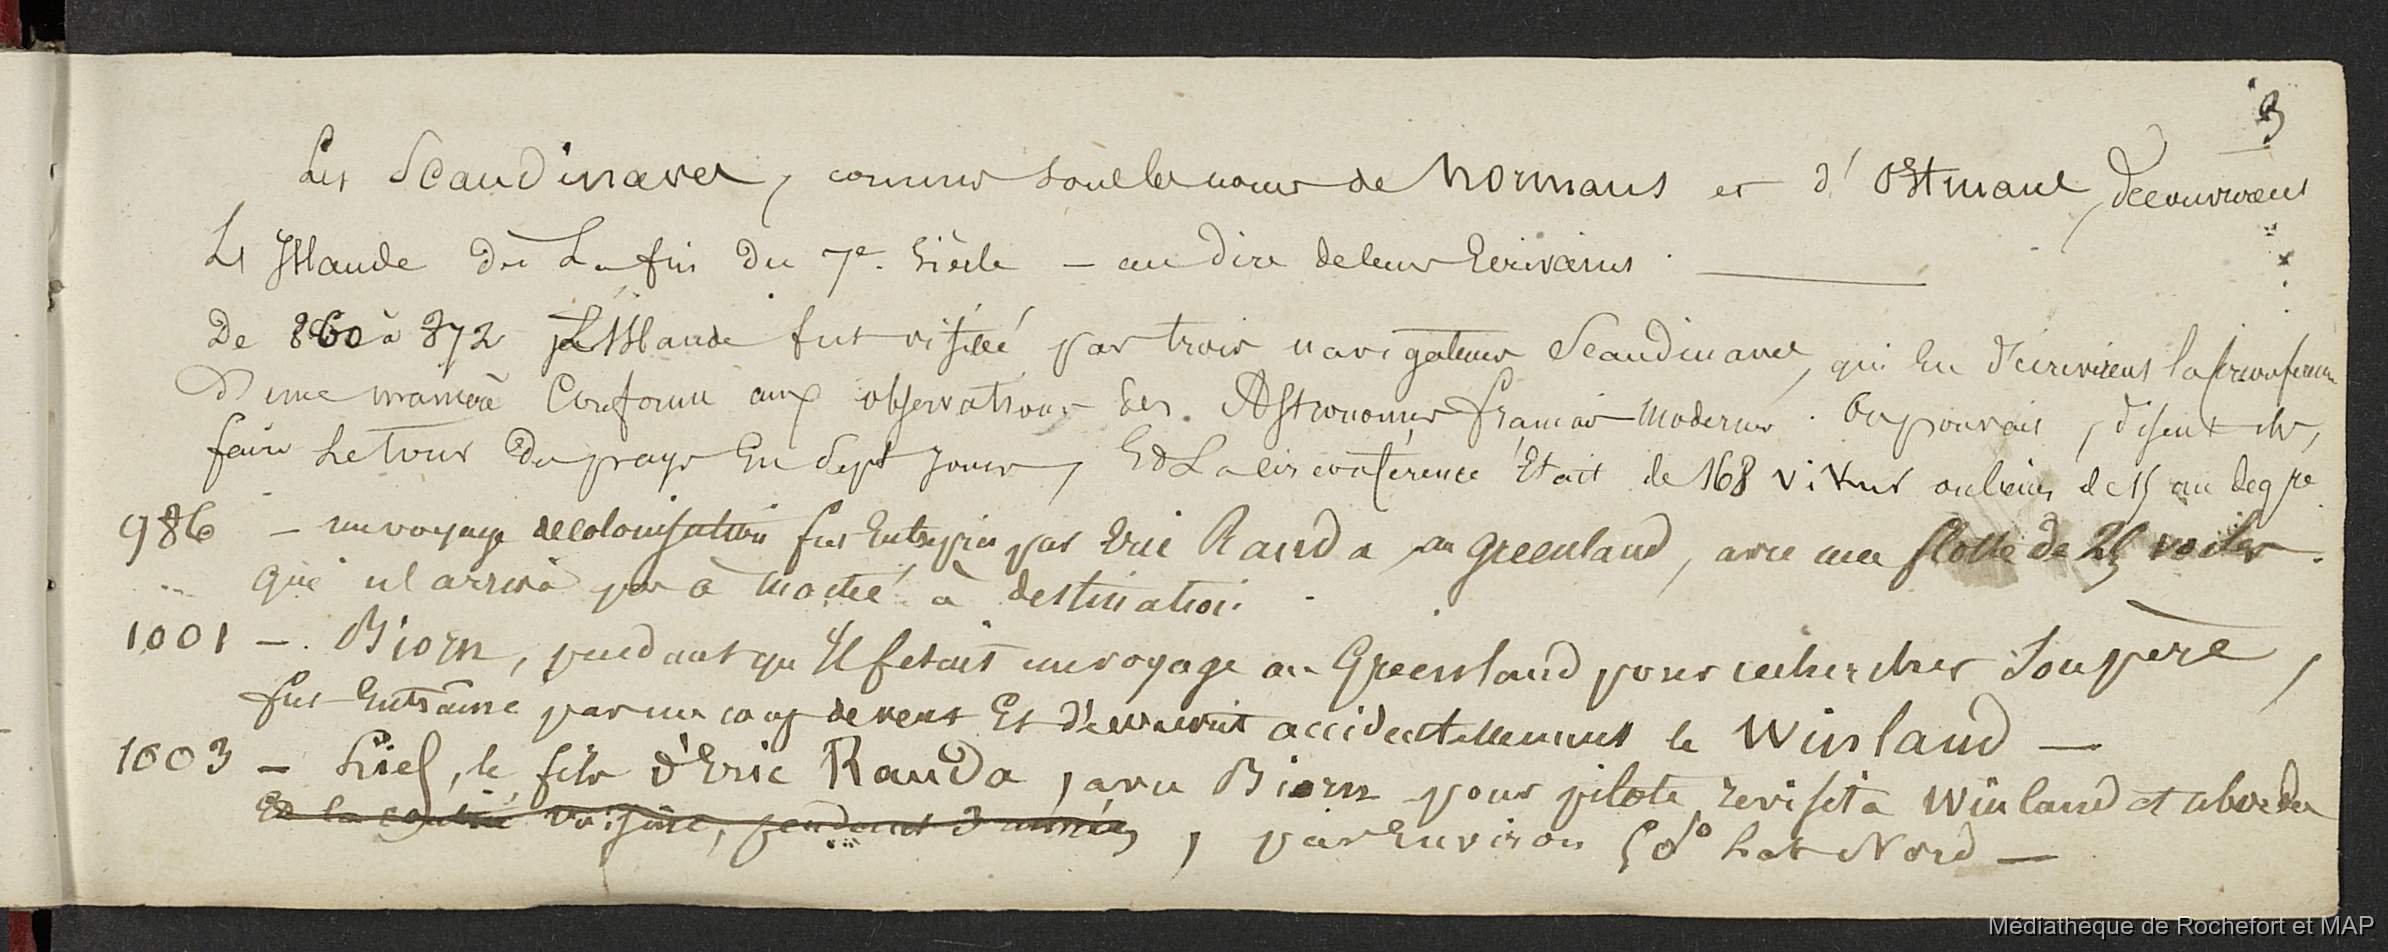 3
Les Scandinaves, connus sous les noms de Normans et d'Ostmans, découvrirent
L'Islande dès La fin du 7e. Siècle — au dire de leurs Ecrivains. —
De 860 à 872 L'Islande fut visitée par trois navigateurs Scandinaves, qui En décrivirent la circonférence
d'une manière Conforme aux observations des Astronomes français modernes. On pouvait, disent ils,
faire Le Tour du pays En Sept jours, Et La circonférence Etait de 168 vikurs ou lieues de 15 au degré.
986 — un voyage de colonisation fut Entrepris par Eric Rauda au Greenland, avec une flotte de 25 voiles.
qui n'arriva pas à moitié à destination.
1001 — Biorn, pendant qu'Il fesait un voyage au Greenland pour rechercher Son père,
fut Entrainé par un coup de vent Et découvrit accidentellement le Winland —
1003 — Lief, le fils d'Eric Rauda, avec Biorn pour pilote, revisita Winland et aborda
Et la contrée voisine, pendant 3 années, par Environ 50° Lat Nord —
Médiathèque de Rochefort et MAP